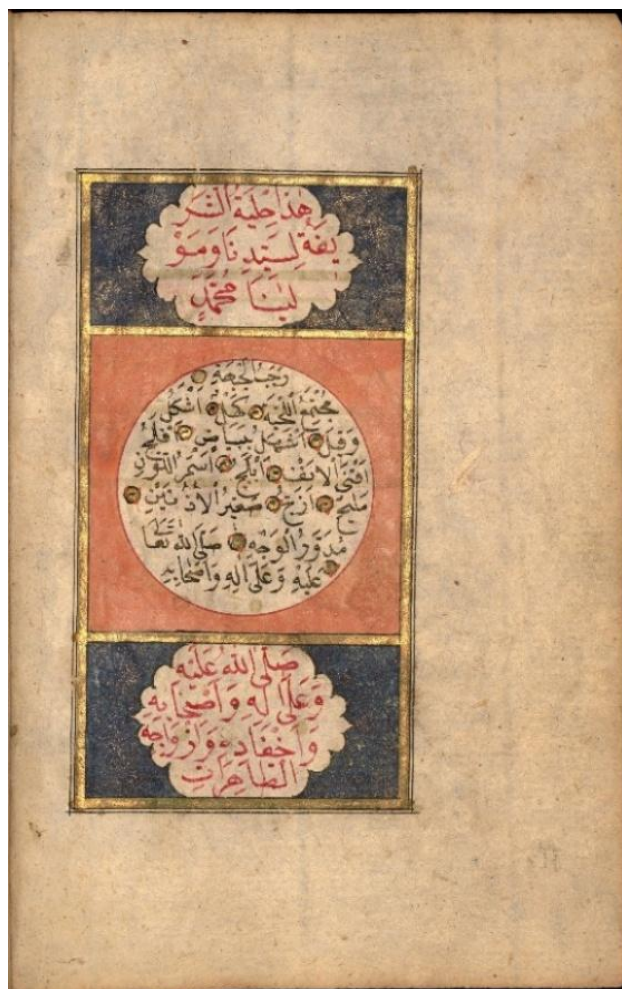 هٰذَا حِلْيَةُ الشَّرِ
يفَةِ لِسَيِّدِنَا وَمَوْ
لٰينَا مُحَمَّدٍ
رَحْبُ الْجَبْهَةِ
مُجْتَمِعُ اللِّحْيَةِ كَحِلٌ اَشْكَلُ
وَقِيلَ اَشْهَلُ بَيَاضٍ اَفْلَجُ
اَقْنَى الْاَنْفِ اَبْلَجُ اَسْمَرُ اللَّوْنِ
مَلِيحٌ اَزَجُّ صَغِيرُ الْاُذُنَيْنِ
مُدَوَّرُ الْوَجْهِ صَلَّى اللهُ تَعَالَى
عَلَيْهِ وَعَلَى اٰلِهِ وَاَصْحَابِهِ
صَلَّى اللهُ عَلَيْهِ
وَعَلَى اٰلِهِ وَاَصْحَابِهِ
وَاَحْفَادِهِ وَاَزْوَاجِهِ
الطَّاهِرَاتِ